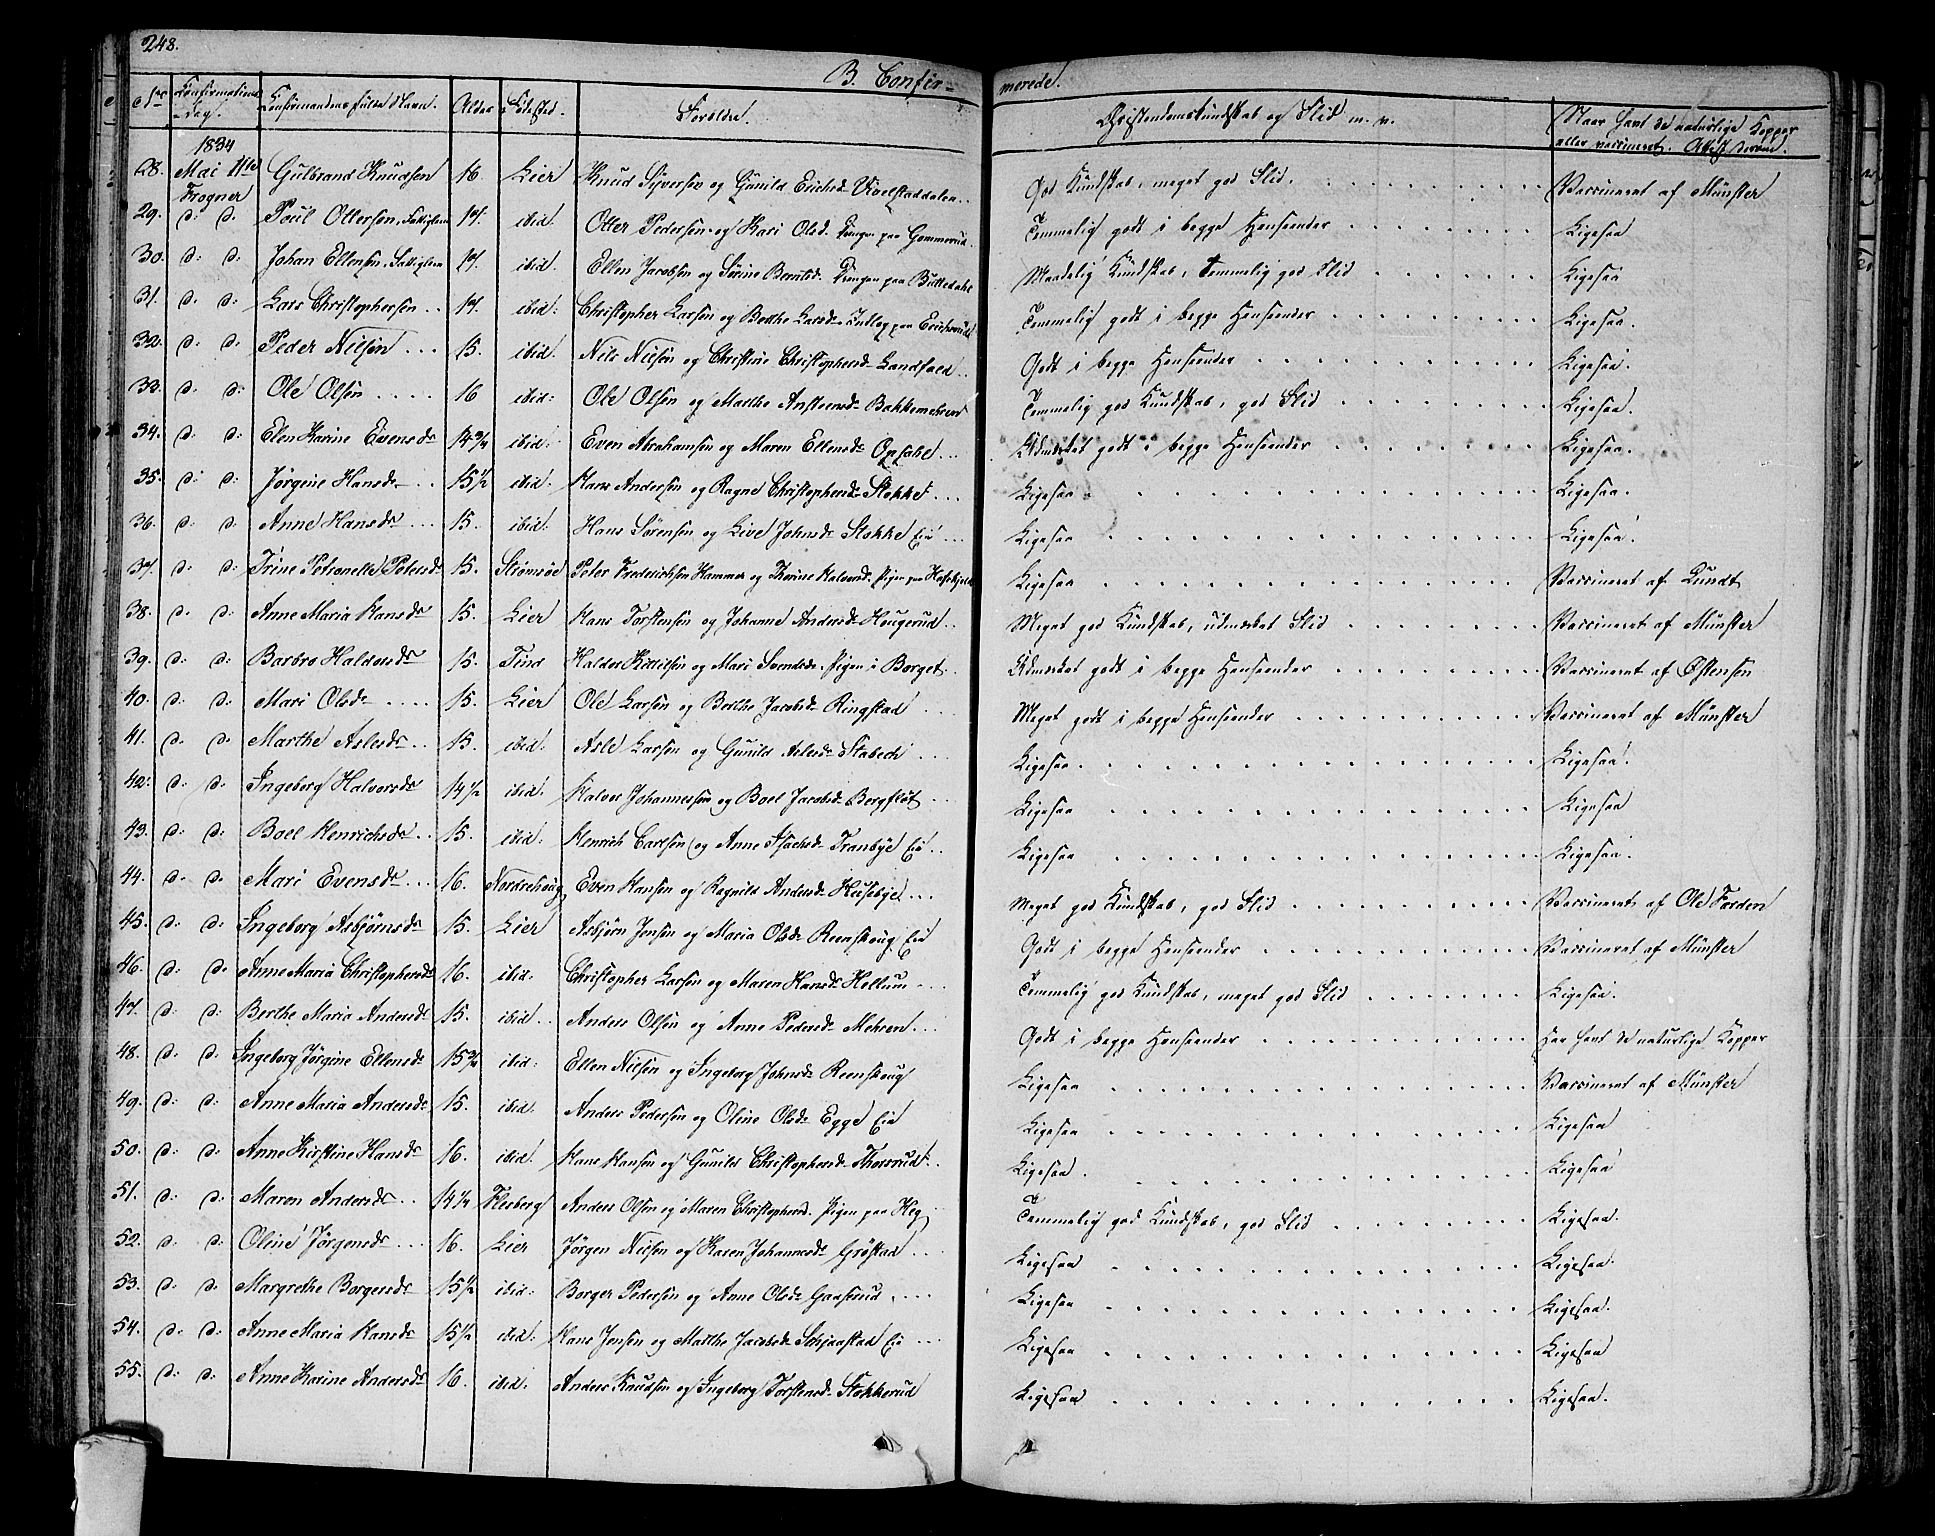 248.
B. Confir- merede.
No. Confirmations -Dag. Confirmandens fulde Navn. Alder Födested. Forældre. Christendomskundskab og Flid m. v. Naar havt de naturlige Kopper eller vaccineret. Attest derom.
1834
28. Mai 11te Frogner Gulbrand Knudsen 16. Lier Knud Syversen og Gunild Erichsd. Meget god Flid. Vaccineret af Münster
29. d: d: Poul Ollersen, 14. ibid. Oller Pedersen og Kari Olsd. Drengen paa Gommerud. Temmelig godt i begge Henseender Ligesaa
30. d: d: Johan Ellensen, 14. ibid. Ellen Jacobsen og Sörine Berntsd. Drengen paa Maadelig Kundskab, temmelig god Flid Ligesaa
31. d: d: Lars Christophersen 14. ibid: Christopher Larsen og Berthe Larsd. Indlæg paa Erichsrud Temmelig godt i begge Henseender Ligesaa.
32. d: d: Peder Nilsen 15. ibid: Nils Nilsen og Christine Christophersd. Landfald Godt i begge Henseender Ligesaa.
33. d: d: Ole Olsen 16 ibid: Ole Olsen og Marthe Ansteensd. Bakkemehren Temmelig god Kundskab, god Flid Ligesaa.
34. d: d: Elen Karine Evensdr 14 3/4 ibid: Even Abrahamsen og Maren Ellensdr Opsahl Udmærket godt i begge Henseender Ligesaa.
35. d: d: Jörgine Hansdr 15 1/2 ibid: Hans Andersen og Ragne Christophersdr Stokke Ligesaa Ligesaa.
36. d: d: Anne Hansdr 15. ibid: Hans Sörensen og Live Johnsdr Stokke Eie Ligesaa Ligesaa.
37. d: d: Trine Petronelle Petersdr 15. Strömsöe Peter Frederichsen Hammer og Thorine Halvorsd. Pigen paa Ligesaa Vaccineret af Lundt
38. d: d: Anne Maria Hansdr 15. Lier Hans Torstensen og Johanne Andersdr Hougerud Meget god Kundskab, udmærket Flid Vaccineret af Münster
39. d: d: Barbro Haldorsdr 15. Tind Haldor Kittilsen og Mari Svendsd. Pigen i Borget Udmærket godt i begge Henseender Vaccineret af Östensen
40. d: d: Mari Olsdr 15. Lier Ole Larsen og Berthe Jacobsdr Ringstad Meget godt i begge Henseender Vaccineret af Münster
41. d: d: Marthe Aslesdr 15. ibid: Asle Larsen og Gunild Aslesdr Stabech Ligesaa. Ligesaa.
42. d: d: Ingeborg Halvorsdr 14 1/2 ibid: Halvor Johannessen og Boel Jacobsdr Bergflöt Ligesaa Ligesaa
43. d: d: Boel Henrichsdr 15. ibid: Henrich Carlsen og Anne Isachsdr Tranbye Eie Ligesaa Ligesaa.
44. d: d: Mari Evensdr 16. Nordrehoug Even Hansen og Ragnild Andersdr Husebye Meget god Kundskab, god Flid Vaccineret af Ole Færden
45. d: d: Ingeborg Asbjørnsdr 15. Lier Asbjørn Jensen og Maria Olsdr Reenskoug Eie Godt i begge Henseender Vaccineret af Münster
46. d: d: Anne Maria Christophersdr 16. ibid: Christopher Larsen og Maren Hansdr Hellum Temmelig god Kundskab, meget god Flid Ligesaa.
47. d: d: Berthe Maria Andersdr 15. ibid. Anders Olsen og Anne Pedersdr Mehren Godt i begge Henseender Har havt de naturlige Kopper
48. d: d: Ingeborg Jörgine Ellensdr 15 3/4 ibid: Ellen Nilsen og Ingeborg Johnsdr Reenskoug Ligesaa Vaccineret af Münster
49. d: d: Anne Maria Andersdr 15. ibid: Anders Pedersen og Oline Olsdr Egge Eie Ligesaa Ligesaa
50. d: d: Anne Kirstine Hansdr 16. ibid: Hans Hansen og Gunild Christophersdr Thorsrud Ligesaa. Ligesaa
51. d: d: Maren Andersdr 14 1/2 Flesberg Anders Olsen og Maren Christophersd. Pigen paa Heg Temmelig god Kundskab, god Flid Ligesaa.
52. d: d: Oline Jörgensdr 16. Lier Jörgen Nilsen og Karen Johannesdr Gröstad Ligesaa Ligesaa.
53. d: d: Margrethe Borgersdr 15 1/2 ibid: Borger Pedersen og Anne Olsdr Gaaserud Ligesaa Ligesaa.
54. d: d: Anne Maria Hansdr 15 1/2 ibid: Hans Jensen og Marthe Jacobsdr Schjæstad Eie Ligesaa Ligesaa
55. d: d: Anne Karine Andersdr 16. ibid: Anders Knudsen og Ingeborg Torstensdr Stokkerud Ligesaa Ligesaa.